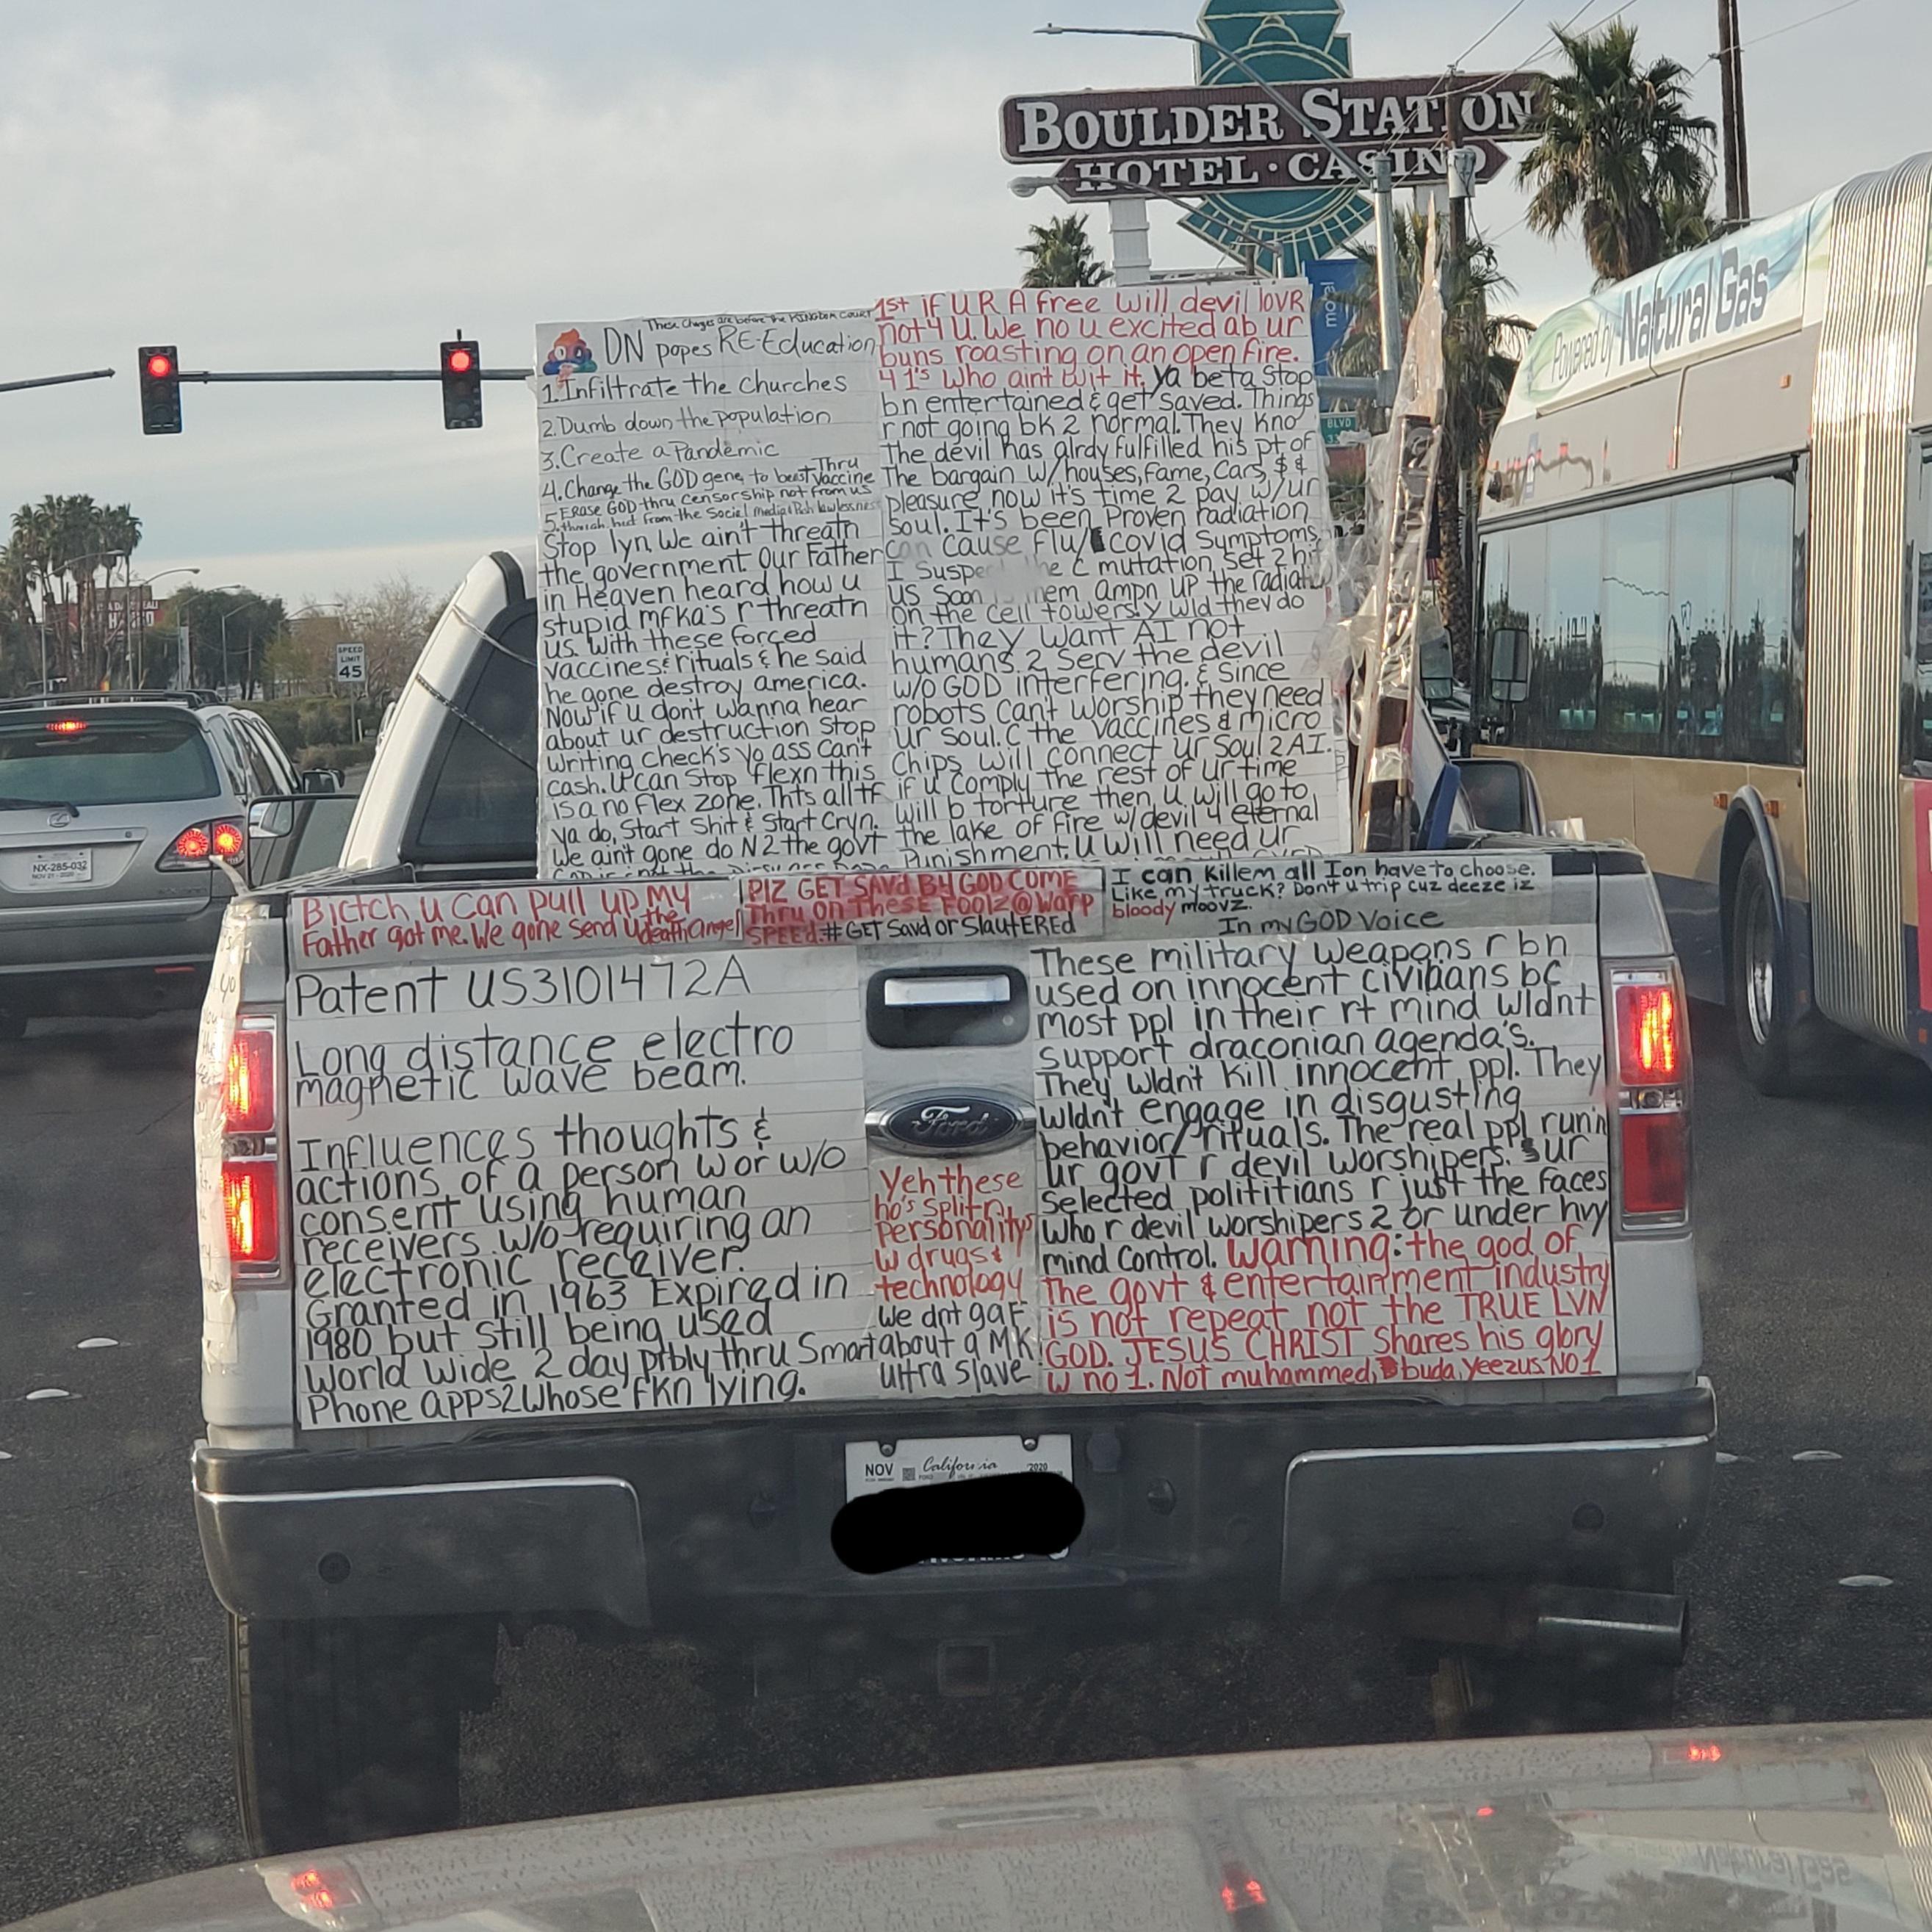 BOULDER STATION
HOTEL · CASINO
Powered by Natural Gas
mora
BLVD
SPEED
LIMIT
45
NX-285-032
NOV 21 - 2020
These Charges are before the KINGDOM COURT
DN popes RE-Education
1. Infiltrate the Churches
2. Dumb down the population
3. Create a Pandemic
4. Change the GOD gene to beast Thru Vaccine
5. Erase GOD thru censorship not from us
but from the Social Media & Push lawlessness
Stop lyn, We ain't threatn
the government. Our Father
in Heaven heard how u
stupid mfka's r threatn
us. With these forced
vaccines & rituals & he said
he gone destroy america.
Now if u don't wanna hear
about ur destruction Stop
writing check's yo ass can't
cash. U can stop flexn this
is a no flex zone. Thts all tf
ya do, Start Shit & Start Cryn.
We ain't gone do N 2 the govt
1st if U R A free will devil lovR
not 4 U. We no u excited ab ur
buns roasting on an open fire.
4 1's who ain't wit it, ya beta stop
bn entertained & get saved. Things
r not going bk 2 normal. They kno
The devil has alrdy fulfilled his pt of
The bargain w/houses, fame, cars, $ &
pleasure now it's time 2 pay w/ur
soul. It's been Proven radiation
can cause flu/covid symptoms.
I Suspect the C mutation set 2 hit
us soon is them ampn up the radiatn
on the cell towers. y wld they do
it? They want AI not
humans 2 serv the devil
w/o GOD interfering. & since
robots can't worship they need
ur soul. C the vaccines & micro
chips will connect ur soul 2 AI.
if u comply the rest of ur time
will b torture then u will go to
the lake of fire w/devil 4 eternal
Punishment. U will need ur
Bictch u can pull up My
Father got me. We gone send u the death angel
Plz GET SAVd BY GOD COME
Thru On These FOOlz @ Warp
SPEED. # GET Savd or SlautEREd
I can Killem all Ion have to choose.
Like my truck? Don't u trip cuz deeze iz
bloody moovz.
In my GOD Voice
Patent US3101472A
Long distance electro
magnetic wave beam.
Influences thoughts &
actions of a person w or w/o
consent using human
receivers w/o requiring an
electronic receiver.
Granted in 1963 Expired in
1980 but still being used
World Wide 2 day prbly thru Smart
Phone apps 2 Whose fkn lying.
Ford
Yeh these
ho's split'n
personality's
w drugs &
technology
we dnt gaf
about a MK
ultra slave
These military weapons r bn
used on innocent civilians bc
most ppl in their rt mind wldnt
support draconian agenda's.
They wldn't kill innocent ppl. They
wldn't engage in disgusting
behavior/rituals. The real ppl run'n
ur govt r devil worshipers. ur
selected polititians r just the faces
who r devil worshipers 2 or under hvy
mind control. Warning: the god of
The govt & entertainment industry
is not repeat not the TRUE LVN
GOD. JESUS CHRIST Shares his glory
w no 1. Not muhammed, buda, Yeezus NO 1
NOV California 2020